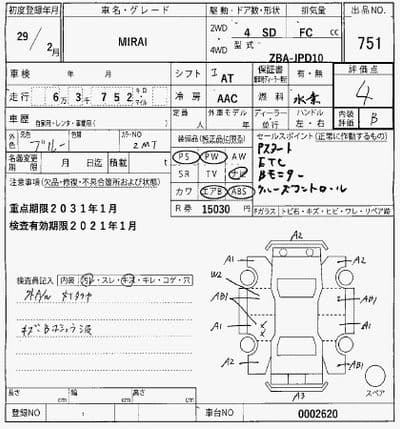 初度登録年月 車名・グレード 駆動・ドア数・形状 排気量 出品NO.
29年 2月 MIRAI 2WD・4WD 4 SD FC cc 751
型式 ZBA-JPD10
車検 年 月 シフト I AT 保証書 有・無 評価点
走行 6万3千752 キロ マイル 冷房 AAC 燃料 水素 4
車歴 自家用・レンタ・事業用( ) 定員 人 外車モデル 年 ディーラー・並行 ハンドル 左・右 内装評価 B
外色 元色 ブルー カラーNO 2MT 装備品(純正品に限る) セールスポイント(正常に作動するもの)
名義変更期限 月 日迄 積載量 t PS PW AW
SR TV ナビ
カワ エアB ABS
Pスタート
ETC
Bモニター
クルーズコントロール
注意事項(欠品・修復・不具合箇所および状態)
R券 15030 円 Fガラス トビ石・キズ・ヒビ・ワレ・リペア跡
重点期限2031年1月
検査有効期限2021年1月
検査員記入 内装 汚レ・スレ・キズ・キレ・コゲ・穴
A2
A1 A1
W2
AB1 AB1
A1 A1
A2 AB1
A3
スペア
長さ cm 幅 cm 高さ cm
登録NO 車台NO 0002620